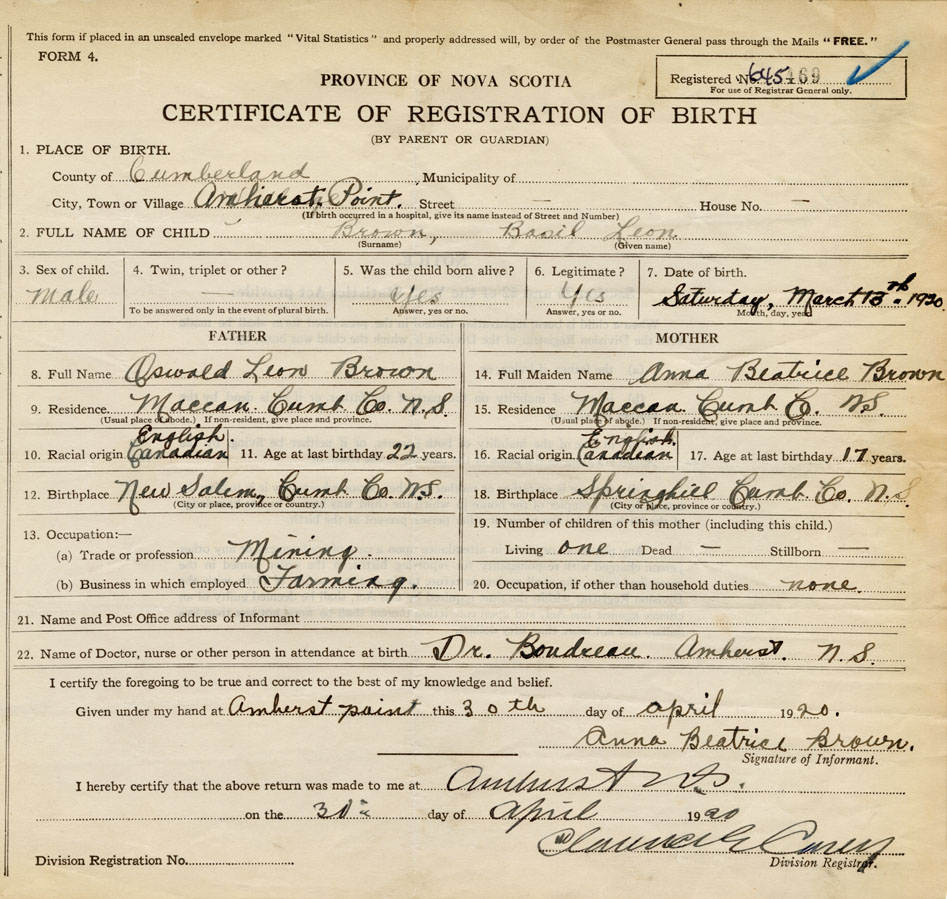 This form if placed in an unsealed envelope marked "Vital Statistics" and properly addressed will, by order of the Postmaster General pass through the Mails "FREE."
FORM 4.
Registered No.
For use of Registrar General only.
PROVINCE OF NOVA SCOTIA
CERTIFICATE OF REGISTRATION OF BIRTH
(BY PARENT OR GUARDIAN)
1. PLACE OF BIRTH.
County of Cumberland, Municipality of
City, Town or Village Amherst Point. Street — House No. —
(If birth occurred in a hospital, give its name instead of Street and Number)
2. FULL NAME OF CHILD Brown, Basil Leon
(Surname) (Given name)
3. Sex of child. 4. Twin, triplet or other? 5. Was the child born alive? 6. Legitimate? 7. Date of birth.
Male — Yes Yes Saturday, March 13th. 1920
To be answered only in the event of plural birth. Answer, yes or no. Answer, yes or no. Month, day, year
FATHER
8. Full Name Oswald Leon Brown
9. Residence Maccan. Cumb. Co. N.S
(Usual place of abode.) If non-resident, give place and province.
10. Racial origin English. Canadian 11. Age at last birthday 22 years.
12. Birthplace New Salem, Cumb. Co. N.S.
(City or place, province or country.)
13. Occupation:—
(a) Trade or profession Mining.
(b) Business in which employed Farming.
MOTHER
14. Full Maiden Name Anna Beatrice Brown
15. Residence Maccan Cumb Co. N.S.
(Usual place of abode.) If non-resident, give place and province.
16. Racial origin English. Canadian 17. Age at last birthday 17 years.
18. Birthplace Springhill Cumb. Co. N.S
(City or place, province or country.)
19. Number of children of this mother (including this child.)
Living one Dead — Stillborn —
20. Occupation, if other than household duties none.
21. Name and Post Office address of Informant
22. Name of Doctor, nurse or other person in attendance at birth Dr. Boudreau. Amherst. N.S.
I certify the foregoing to be true and correct to the best of my knowledge and belief.
Given under my hand at Amherst point this 30th day of april 1920.
Anna Beatrice Brown.
Signature of Informant.
I hereby certify that the above return was made to me at Amherst N.S.
on the 30th day of April 1920
Division Registrar.
Division Registration No.